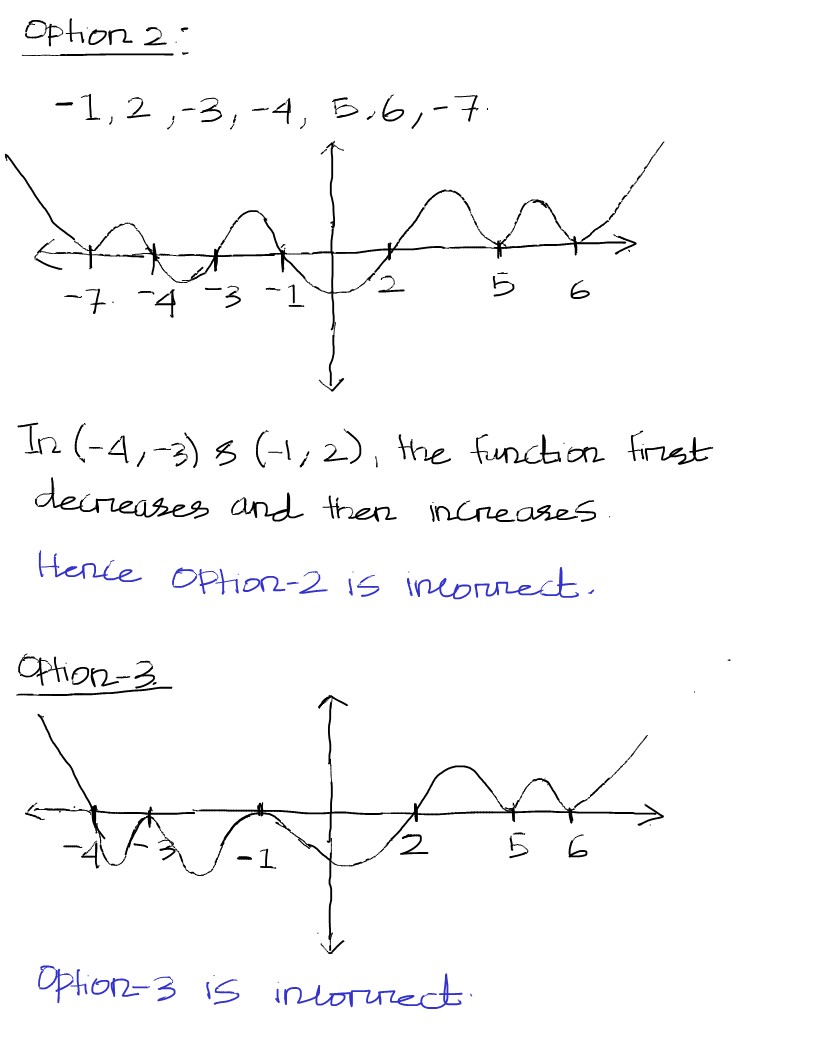 Option 2:
-1, 2, -3, -4, 5, 6, -7.
-7. -4 -3 -1 2 5 6
In (-4, -3) & (-1, 2), the function first
decreases and then increases.
Hence Option-2 is incorrect.
Option-3.
-4 -3 -1 2 5 6
Option-3 is incorrect.